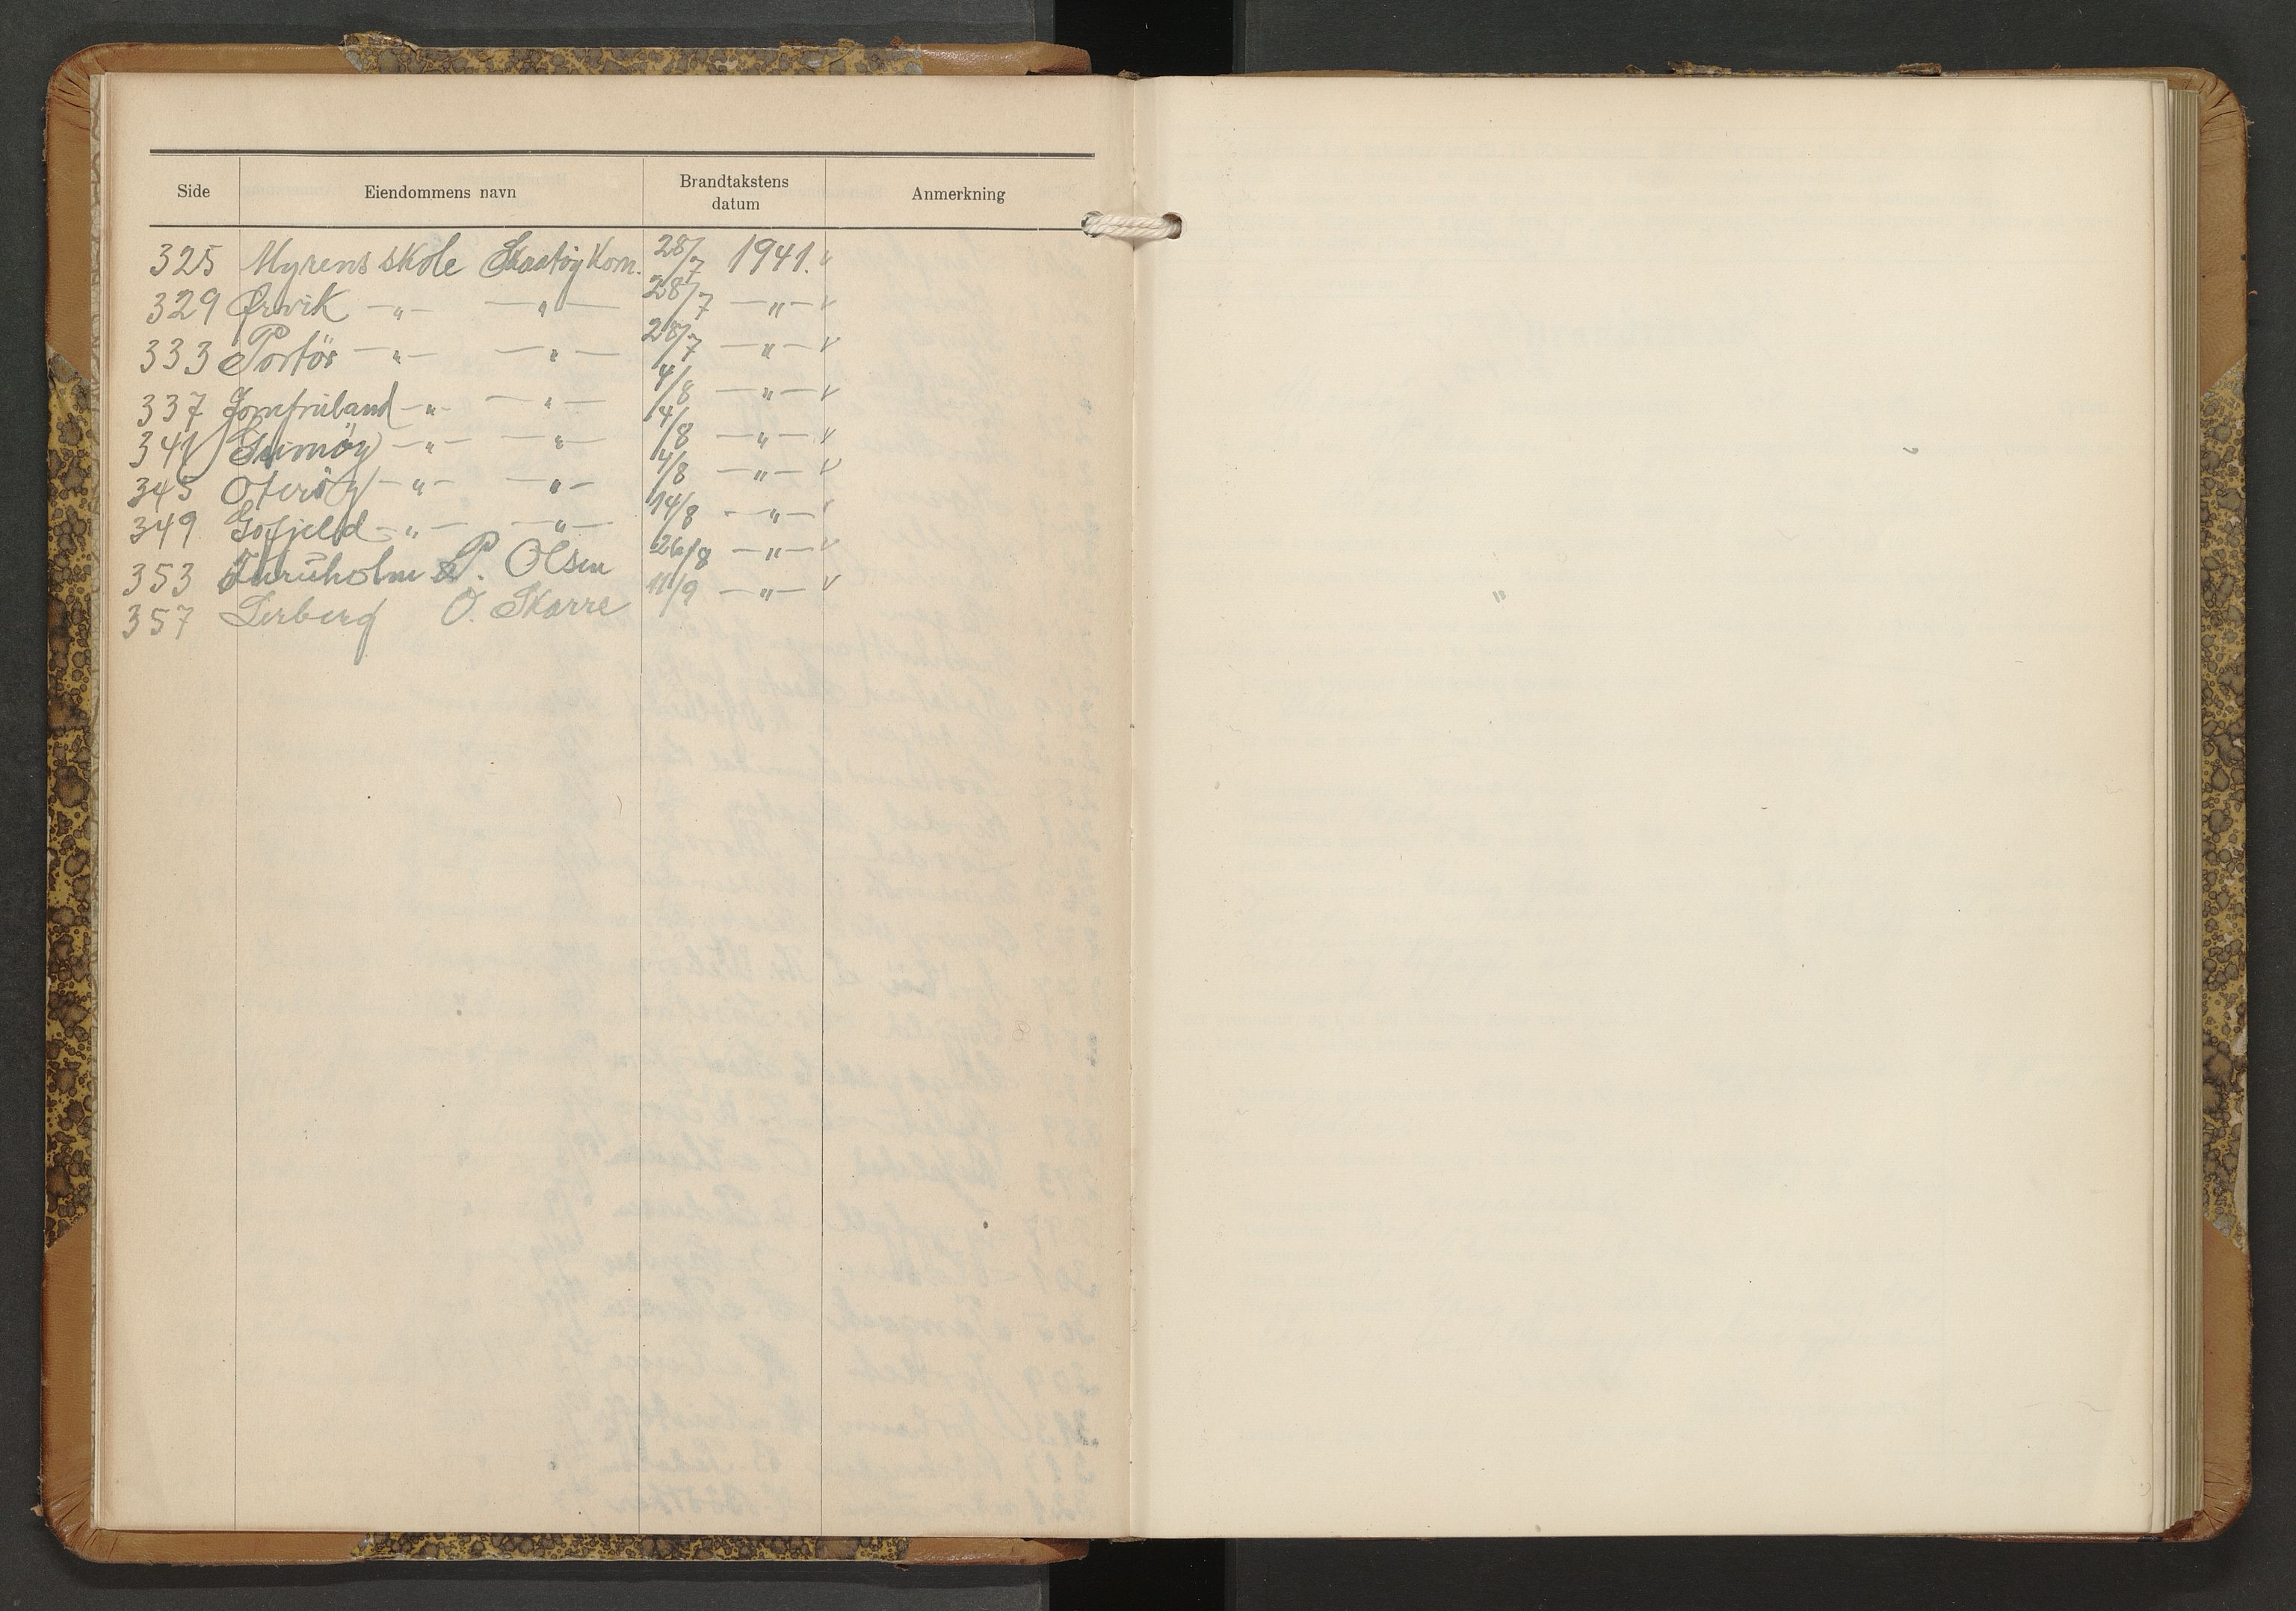 Side Eiendommens navn Brandtakstens datum Anmerkning
325 Myrens skole Skaatøy Kom. 28/7 1941. "
329 Ørvik — " — — " — 28/7 — " — v
333 Portör — " — — " — 28/7 — " — v
337 Jomfruland — " — — " — 4/8 — " — v
341 Gumøy — " — — " — 4/8 — " — v
345 Oterøy — " — — " — 4/8 — " — v
349 Gofjeld — " — — " — 14/8 — " — v
353 Furuholm P. Olsen 26/8 — " — v
357 Lerberg O. Skarre 11/9 — " — v